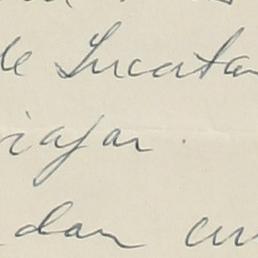 de Yucata
iajar.
dan cu